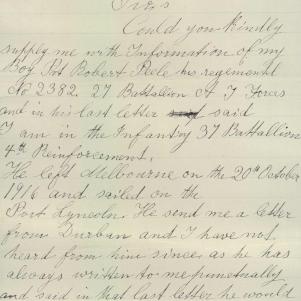 Sirs
Could you kindly
supply me with Information of my
Boy Pvt Robert Pele his regimental
No 2382 27 Battalion A I Forces
and in his last letter said
I am in the Infantry 37 Battallion
4th Reinforcement.
He left Melbourne on the 20th October
1916 and sailed on the
Port Lyncoln. He send me a letter
from Durban and I have not
heard from him since as he has
always written to me punctually
and said in that last letter he would